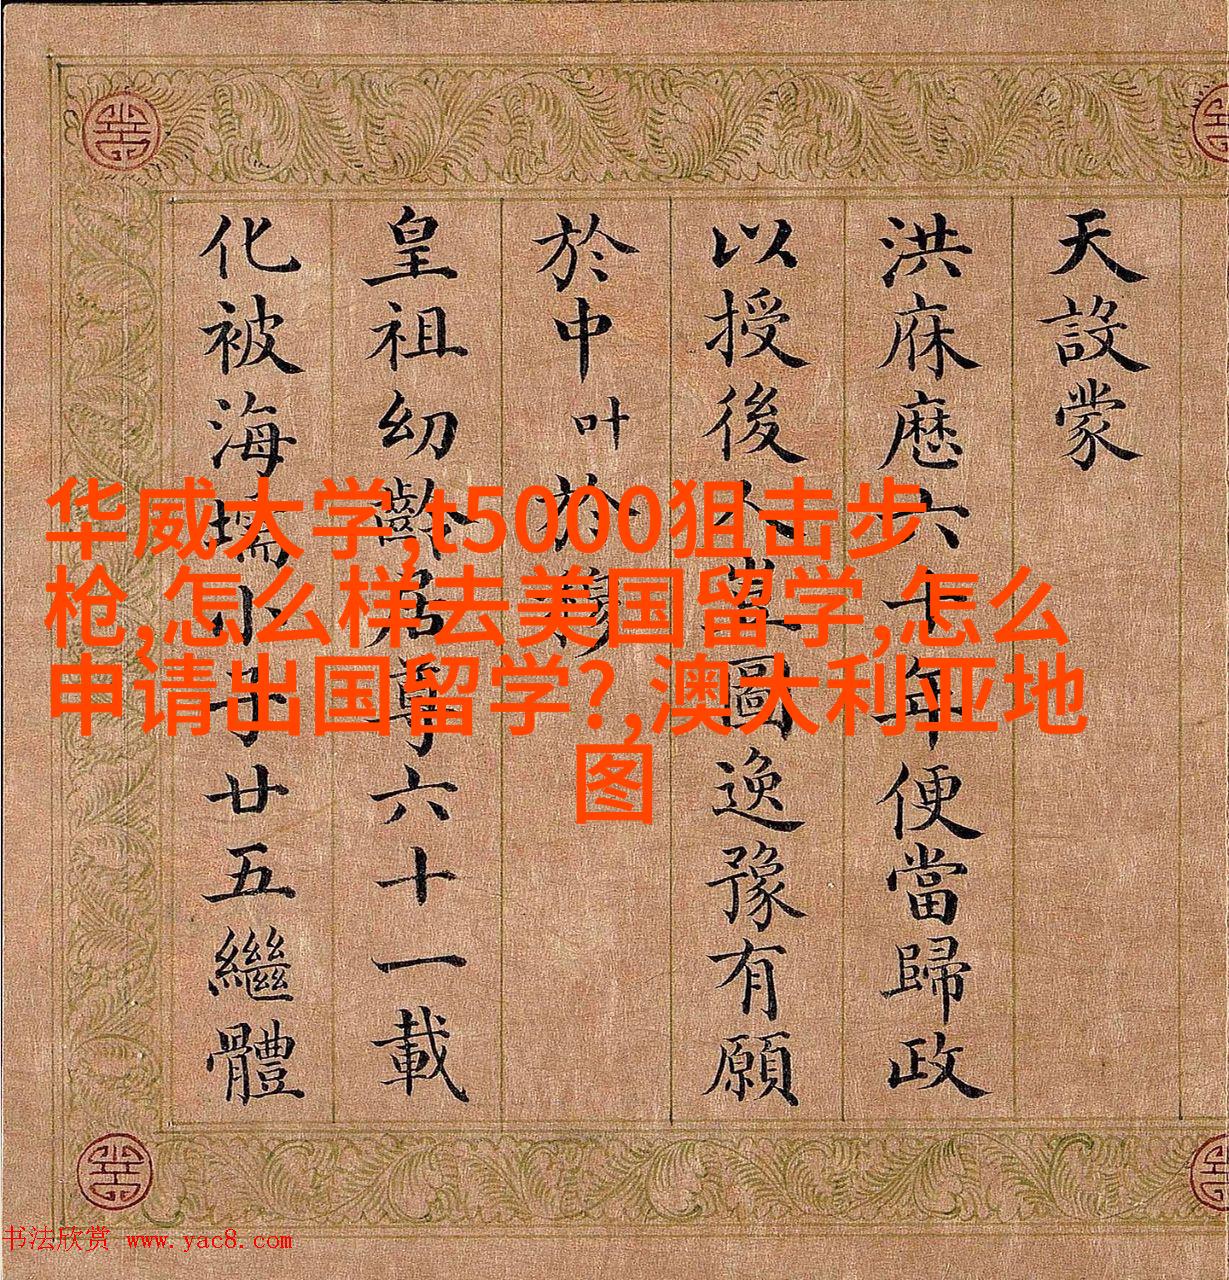 天設蒙
洪庥厯六十年便當歸政
以授後人豈圖逸豫有願
於中叶於
皇祖幼齡居尊六十一載
化被海壖小子廿五繼體
华威大学,t5000狙击步
枪,怎么样去美国留学,怎么
申请出国留学?,澳大利亚地
图
书法欣赏 www.yac8.com